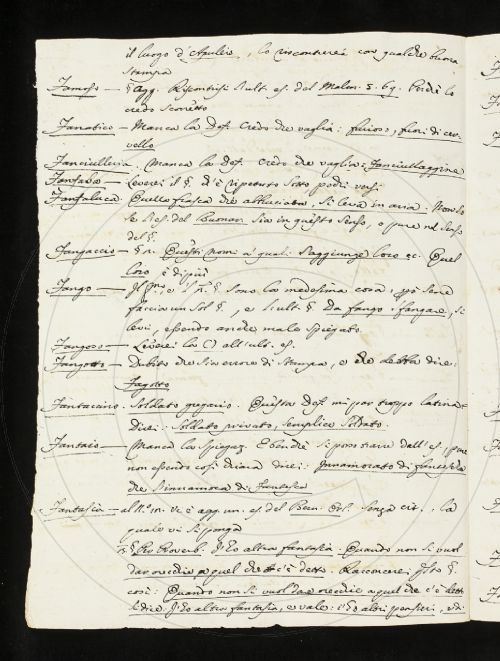 il luogo d'Apuleio, lo riscontrerei con qualche buona
stampa
Famoso — § agg. Riscontrisi l'ult. es. del Malm. 5. 69. perchè lo
credo scorretto
Fanatico — Manca la Def. Credo che vaglia: furioso, fuori di cer-
vello
Fanciulleria. Manca la Def. Credo che vaglia: Fanciullaggine
Leverei il §. ch'è ripetuto sotto pochi versi
Fanfaluca. Quella frasca che abbruciata, si leva in aria. Non so
se l'es. del Buonar. sia in questo senso, o pure nel senso
del §.
Fangaccio — § Questi nomi a' quali s'aggiunge loro ec. Quel
loro è di più
Fango — Il pmo, e il §. sono la medesima cosa: però se ne
faccia un sol §., e l'ult. §. Da fango: fangare, si
levi, essendo anche male spiegato
Fangoso — Leverei la () all'ult. es.
Fangotto — Dubito che sia errore di stampa, e che debba dire:
Fagotto
Fantaccino. Soldato gregario. Questa Def. mi par troppo latina
Direi: Soldato privato, semplice soldato.
Fantaio — Manca la spiegaz. E benchè si possa trarre dall'es., pure
non essendo così chiara direi: Innamorato di fantesca
che s'innamora di fantesca
Fantasia — al N.° III. ve è agg. un. es. del Bern. Orl. senza cit. la
quale vi si ponga
§ Per Proverb. I' ho altra fantasia. Quando non si vuol
dar orecchio a quel che c'è detto. Racconcerei
così: Quando non si vuol dar orecchie a quel che c'è detto
si dice I' ho altra fantasia, e vale: i' ho altri pensieri,